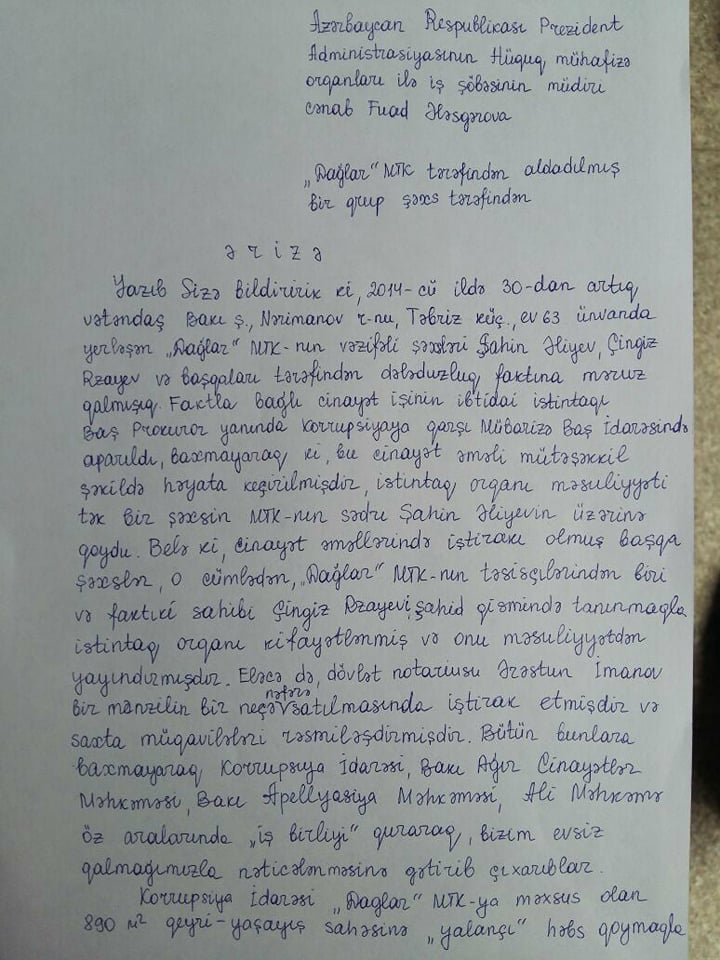 Azərbaycan Respublikası Prezident
Administrasiyasının Hüquq mühafizə
orqanları ilə iş şöbəsinin müdiri
cənab Fuad Ələsgərova
„Dağlar“ MTK tərəfindən aldadılmış
bir qrup şəxs tərəfindən
ə r i z ə
Yazıb Sizə bildiririk ki, 2014-cü ildə 30-dan artıq
vətəndaş Bakı ş., Nərimanov r-nu, Təbriz küç., ev 63 ünvanda
yerləşən „Dağlar“ MTK-nın vəzifəli şəxsləri Şahin Əliyev, Çingiz
Rzayev və başqaları tərəfindən dələduzluq faktına məruz
qalmışıq. Faktla bağlı cinayət işinin ibtidai istintaqı
Baş Prokuror yanında Korrupsiyaya qarşı Mübarizə Baş İdarəsində
aparıldı, baxmayaraq ki, bu cinayət əməli mütəşəkkil
şəkildə həyata keçirilmişdir, istintaq orqanı məsuliyyəti
tək bir şəxsin MTK-nın sədri Şahin Əliyevin üzərinə
qoydu. Belə ki, cinayət əməllərində iştirakı olmuş başqa
şəxslər, o cümlədən, „Dağlar“ MTK-nın təsisçılərindən biri
və faktiki sahibi Çingiz Rzayevi, şahid qismində tanınmaqla
istintaq orqanı kifayətlənmiş və onu məsuliyyətdən
yayındırmışdır. Eləcə də, dövlət notariusu Ərəstun İmanov
bir mənzilin bir neçə nəfərə satılmasında iştirak etmişdir və
saxta müqavilələri rəsmiləşdirmişdir. Bütün bunlara
baxmayaraq Korrupsiya İdarəsi, Bakı Ağır Cinayətlər
Məhkəməsi, Bakı Apellyasiya Məhkəməsi, Ali Məhkəmə
öz aralarında „iş birliyi“ quraraq, bizim evsiz
qalmağımızla nəticələnməsinə gətirib çıxarıblar.
Korrupsiya İdarəsi „Dağlar“ MTK-ya məxsus olan
890 m² qeyri-yaşayış sahəsinə „yalançı“ həbs qoymaqla